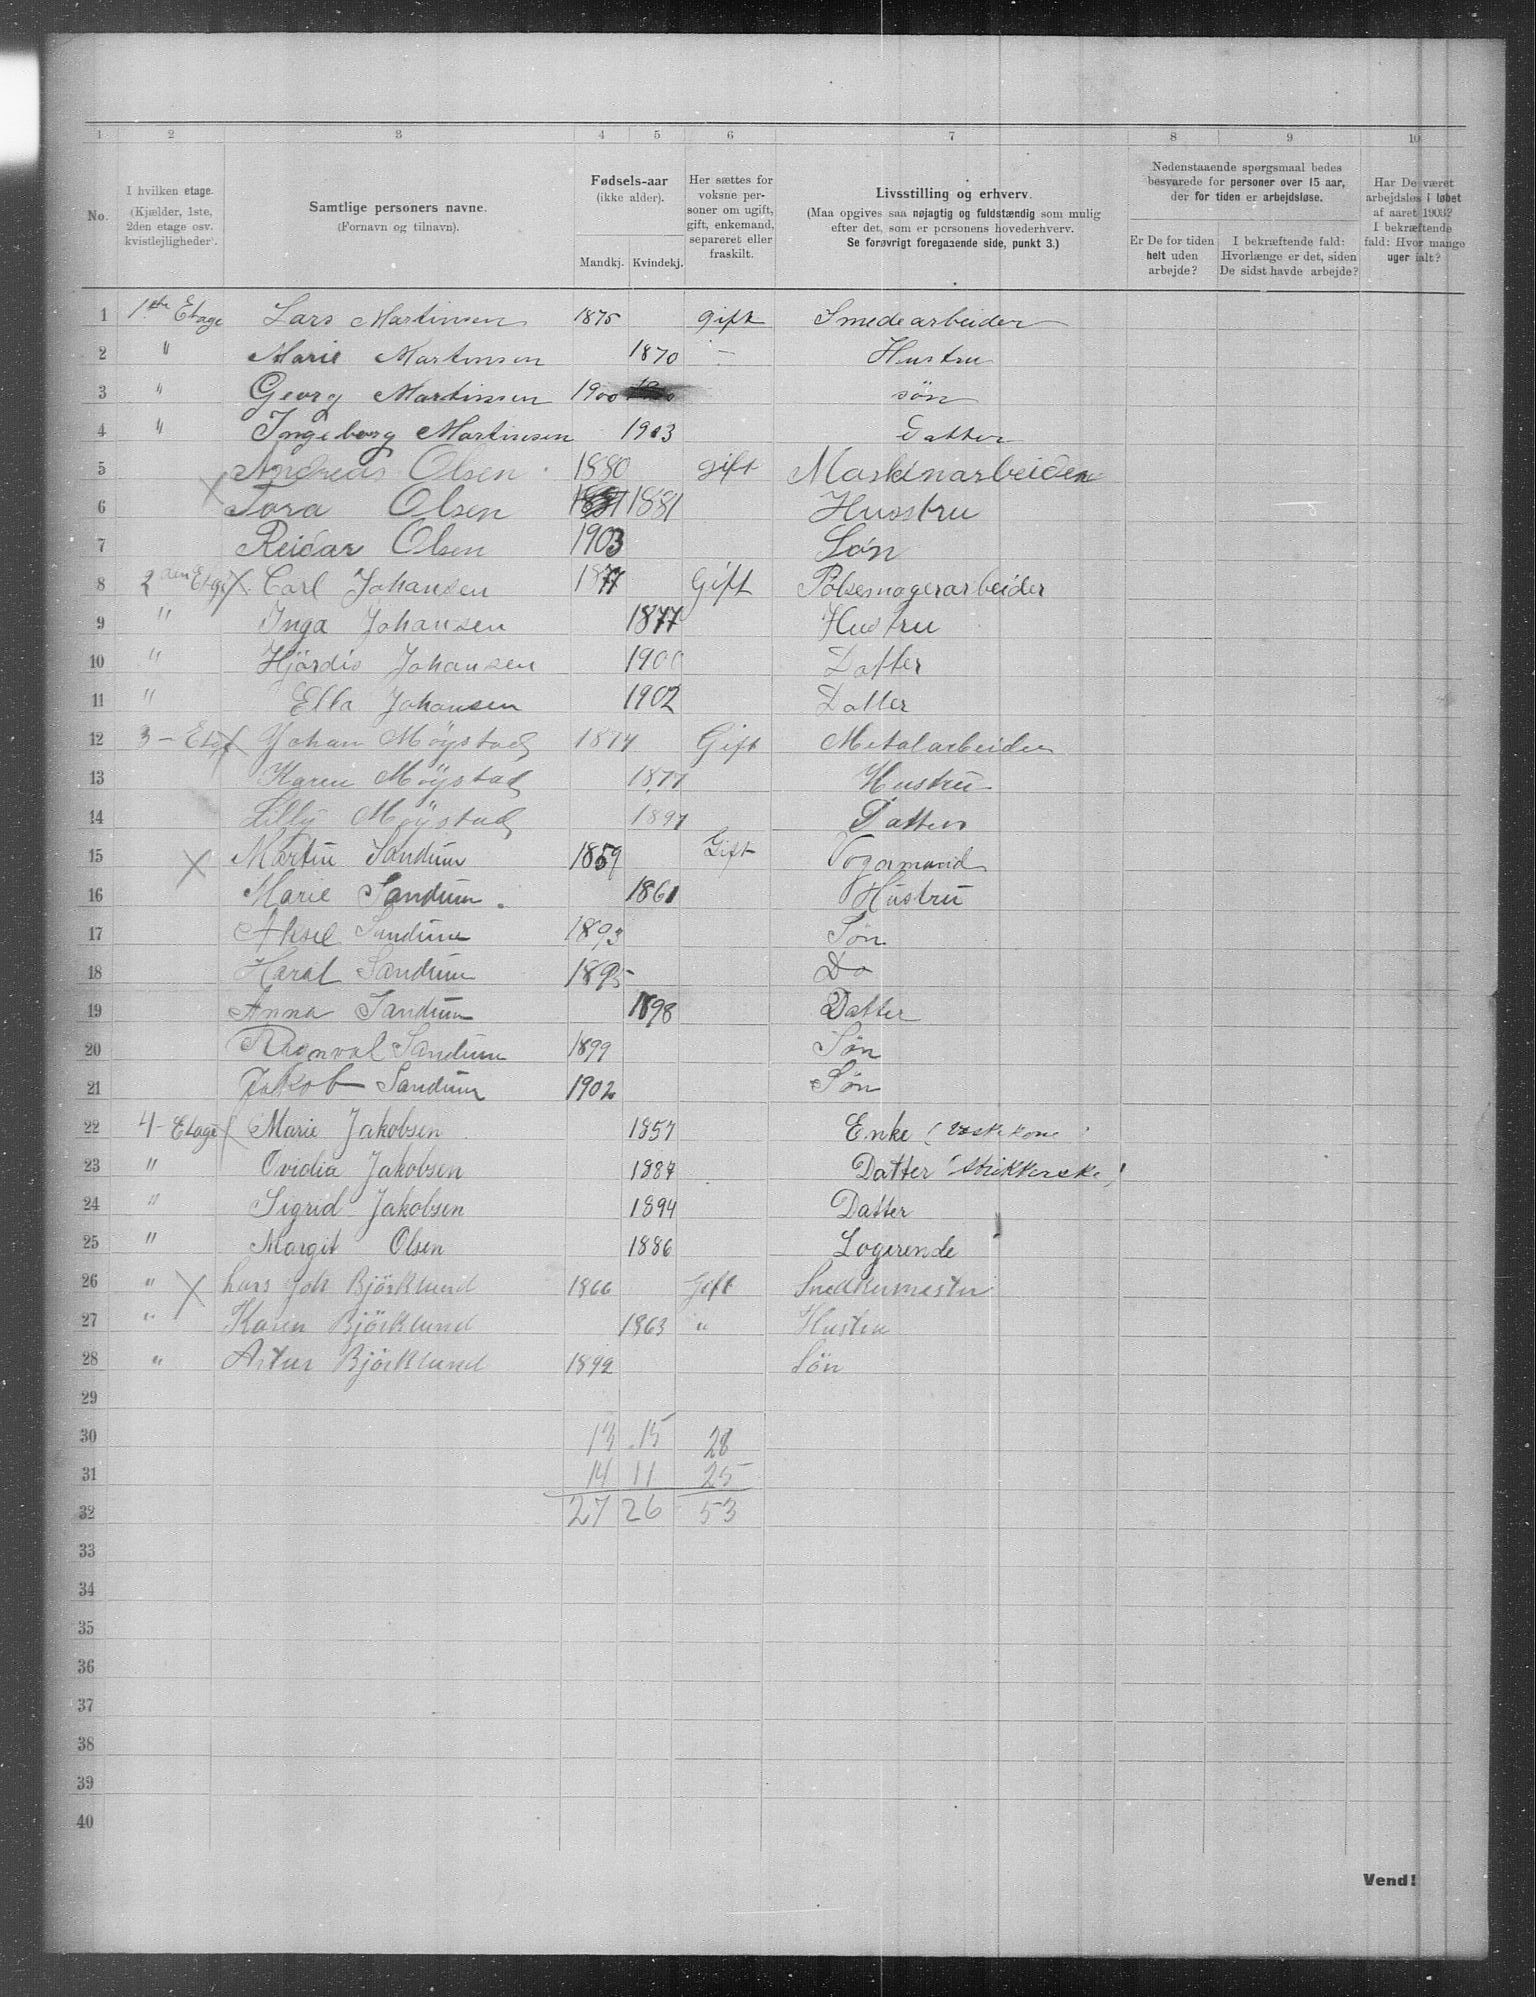 1 2 3 4 5 6 7 8 9 10
No.
I hvilken etage.
(Kjælder, 1ste,
2den etage osv.
kvistlejligheder).
Samtlige personers navne.
(Fornavn og tilnavn).
Fødsels-aar
(ikke alder).
Mandkj. Kvindekj.
Her sættes for
voksne per-
soner om ugift,
gift, enkemand,
separeret eller
fraskilt.
Livsstilling og erhverv.
(Maa opgives saa nøjagtig og fuldstændig som mulig
efter det, som er personens hovederhverv.
Se forøvrigt foregaaende side, punkt 3.)
Nedenstaaende spørgsmaal bedes
besvarede for personer over 15 aar,
der for tiden er arbejdsløse.
Er De for tiden
helt uden
arbejde?
I bekræftende fald:
Hvorlænge er det, siden
De sidst havde arbejde?
Har De været
arbejdsløs i løbet
af aaret 1903?
I bekræftende
fald: Hvor mange
uger ialt?
1 1ste Etage Lars Martinsen 1875 gift Smedearbeider
2 " Marie Martinsen 1870 — Hustru
3 " Georg Martinsen 1900 søn
4 " Ingeborg Martinsen 1903 Datter
5 Andreas Olsen 1880 gift Maskinarbeider
6 X Tora Olsen 1881 Husstru
7 Reidar Olsen 1903 Søn
8 2den Etge X Carl Johansen 1877 Gift Pølsemagerarbeider
9 " Inga Johansen 1877 Hustru
10 " Hjördis Johansen 1900 Datter
11 " Ella Johansen 1902 Datter
12 3 - Etg X Johan Möystad 1874 Gift Metalarbeider
13 Karen Möystad 1877 Hustru
14 Lilly Möystad 1897 Datter
15 X Martin Sandum 1859 Gift Vognmand
16 Marie Sandum 1861 Hustru
17 Aksel Sandum 1893 Søn
18 Haral Sandum 1895 Do
19 Anna Sandum 1898 Datter
20 Ragnval Sandum 1899 Søn
21 Jakob Sandum 1902 Søn
22 4 - Etage X Marie Jakobsen 1857 Enke (Vaskekone)
23 " Ovidia Jakobsen 1884 Datter (Strikkerske)
24 " Sigrid Jakobsen 1894 Datter
25 " Margit Olsen 1886 Logerende
26 " X Lars Joh Björklund 1866 Gift Snedkermester
27 " Karen Björklund 1863 " Hustru
28 " Artur Björklund 1892 Søn
29
30 13 15 28
31 14 11 25
32 27 26 53
33
34
35
36
37
38
39
40
Vend!